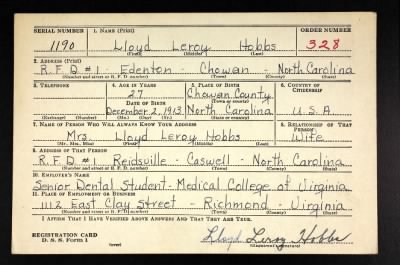 SERIAL NUMBER 1. NAME (Print) ORDER NUMBER
1190 Lloyd Leroy Hobbs 328
(First) (Middle) (Last)
2. ADDRESS (Print)
R.F.D #1 - Edenton - Chowan - North Carolina
(Number and street or R. F. D. number) (Town) (County) (State)
3. TELEPHONE 4. AGE IN YEARS 5. PLACE OF BIRTH 6. COUNTRY OF CITIZENSHIP
27 Chowan County
DATE OF BIRTH (Town or county)
December 2, 1913 North Carolina U.S.A
(Exchange) (Number) (Mo.) (Day) (Yr.) (State or country)
7. NAME OF PERSON WHO WILL ALWAYS KNOW YOUR ADDRESS 8. RELATIONSHIP OF THAT PERSON
Mrs. Lloyd Leroy Hobbs Wife
(Mr., Mrs., Miss) (First) (Middle) (Last)
9. ADDRESS OF THAT PERSON
R.F.D #1 Reidsville - Caswell - North Carolina
(Number and street or R. F. D. number) (Town) (County) (State)
10. EMPLOYER'S NAME
Senior Dental Student - Medical College of Virginia
11. PLACE OF EMPLOYMENT OR BUSINESS
1112 East Clay Street - Richmond - Virginia
(Number and street or R. F. D. number) (Town) (County) (State)
I AFFIRM THAT I HAVE VERIFIED ABOVE ANSWERS AND THAT THEY ARE TRUE.
REGISTRATION CARD
D. S. S. Form 1 (over) Lloyd Leroy Hobbs